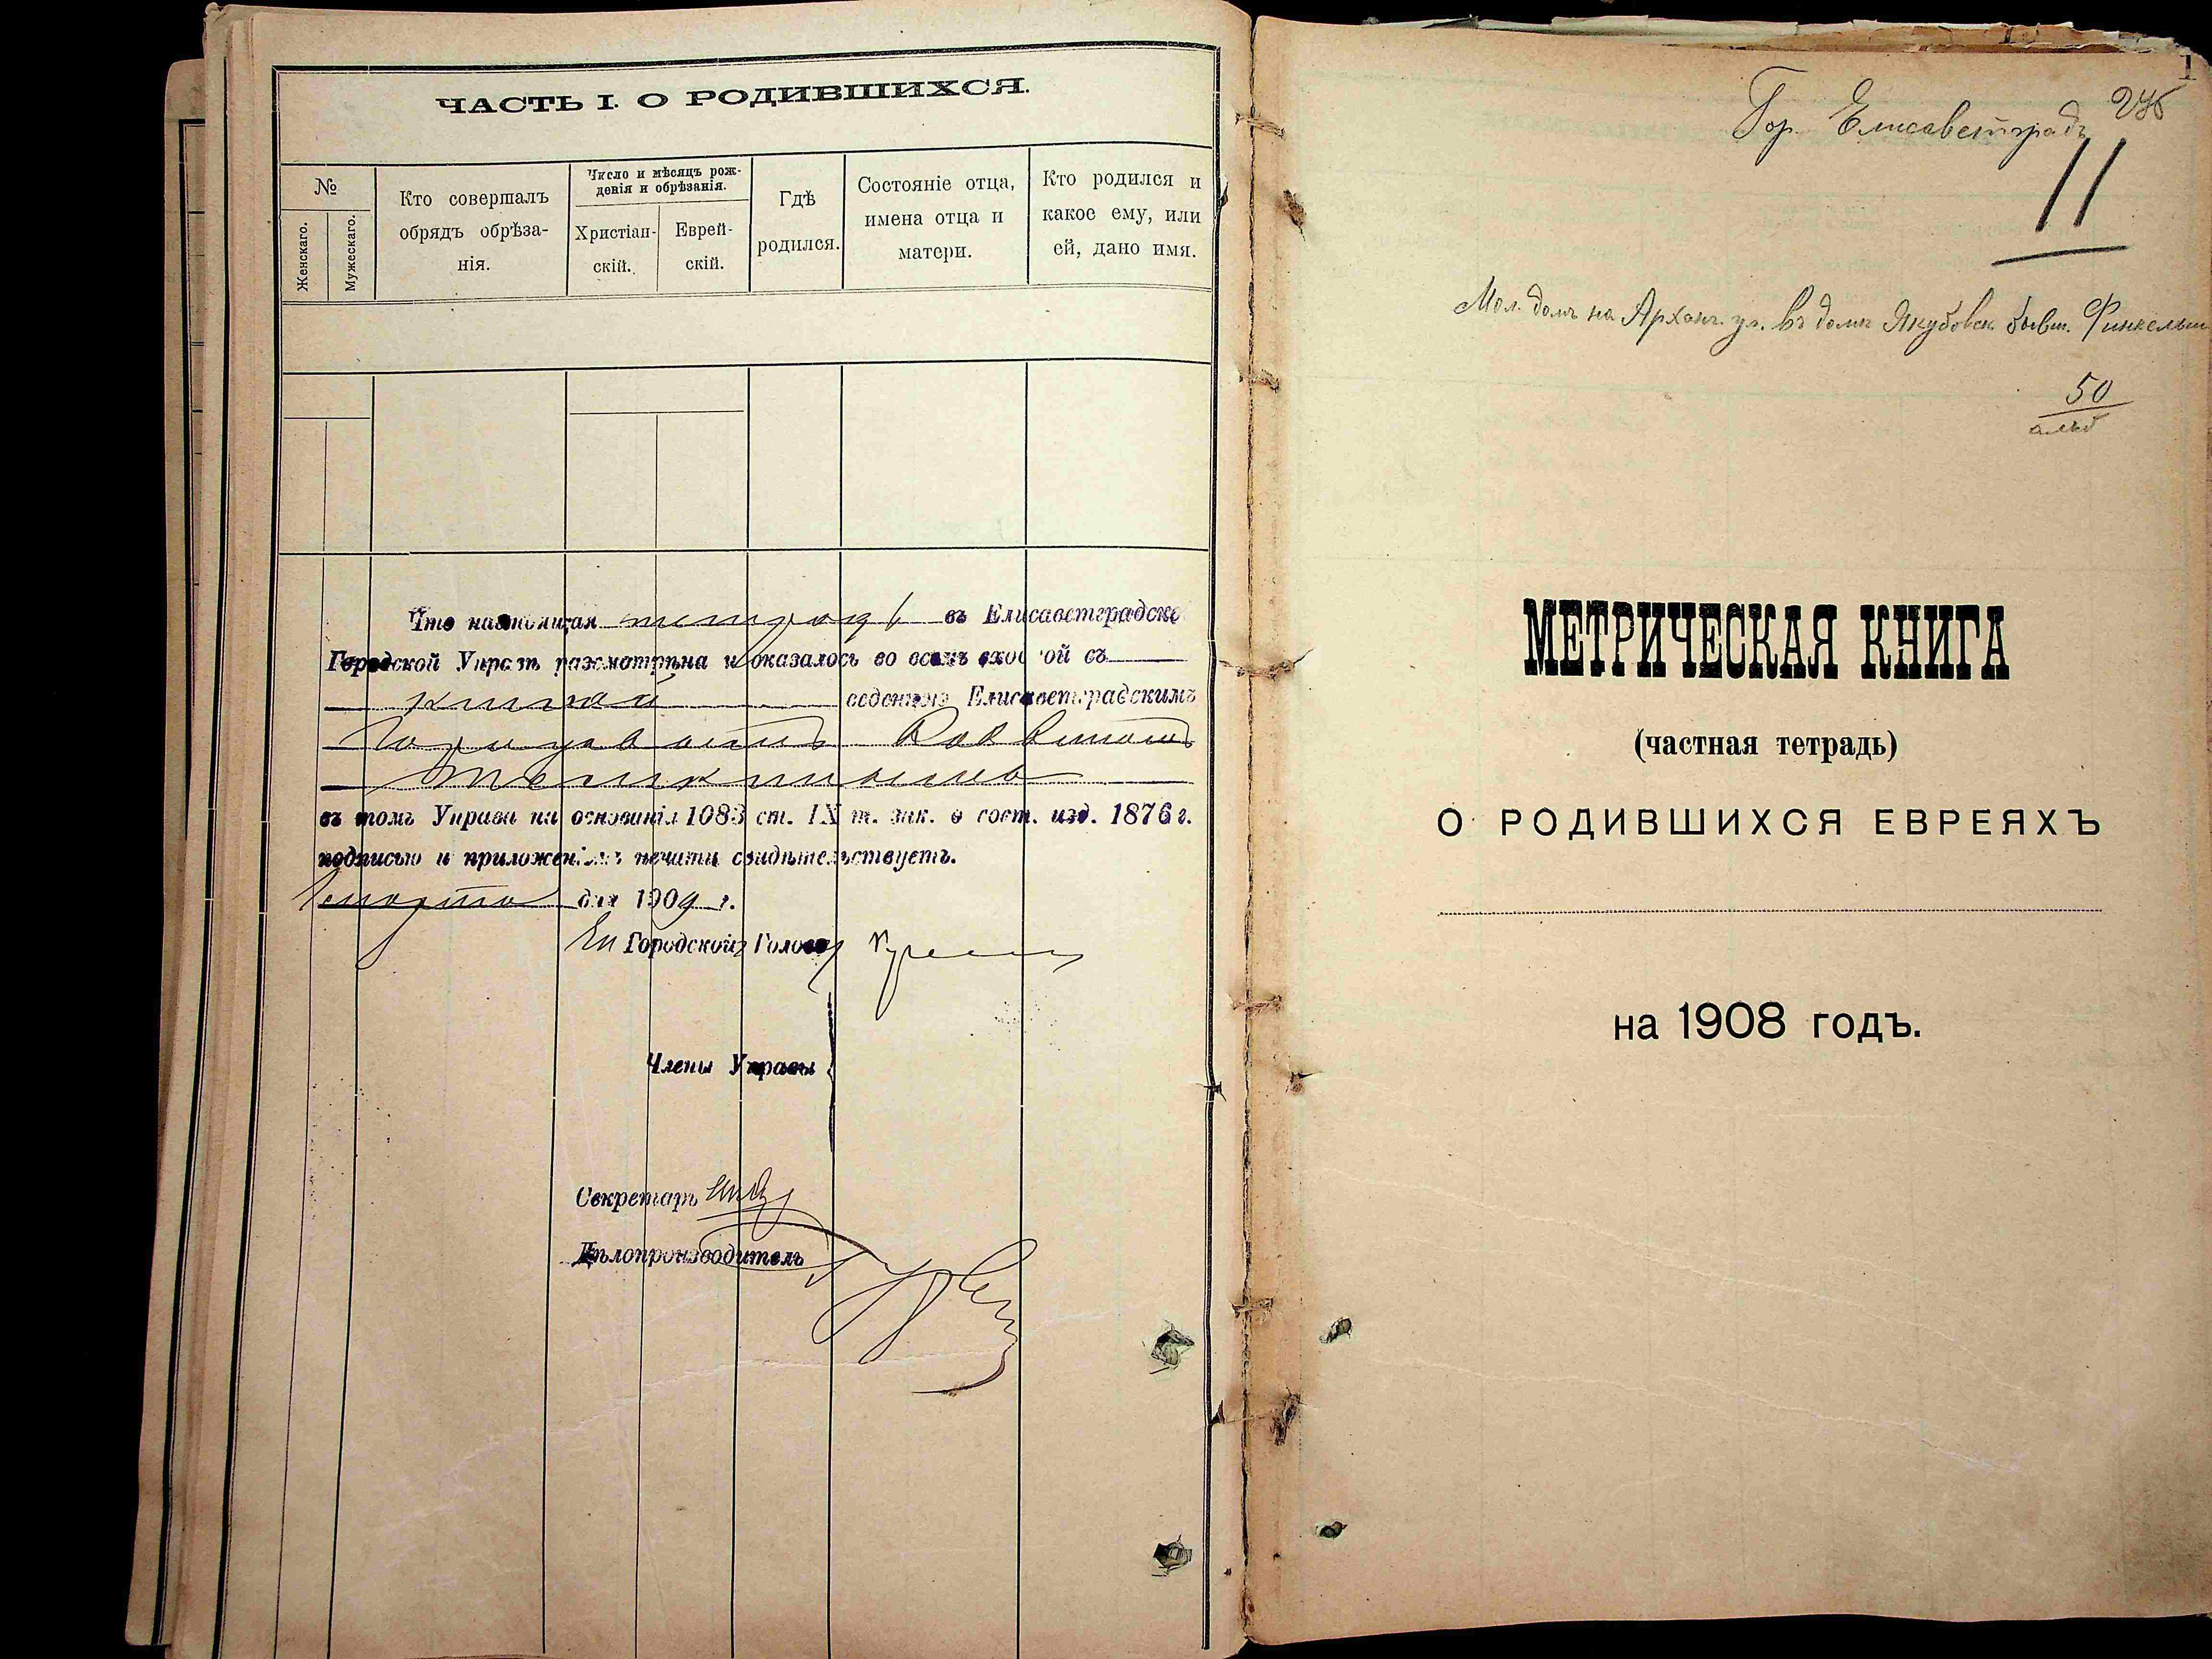 ЧАСТЬ I. О РОДИВШИХСЯ.
№
Женскаго.
Мужескаго.
Кто совершалъ
обрядъ обрѣза-
нія.
Число и мѣсяцъ рож-
денія и обрѣзанія.
Христіан-
скій.
Еврей-
скій.
Гдѣ
родился.
Состояніе отца,
имена отца и
матери.
Кто родился и
какое ему, или
ей, дано имя.
Что настоящая тетрадь въ Елисаветградско
Городской Управѣ разсмотрѣна и оказалось во всемъ сходной съ
книгой веденною Елисаветградскимъ
Раввиномъ
въ томъ Управа на основаніи 1083 ст. IX т. зак. о сост. изд. 1876 г.
подписью и приложеніемъ печати свидѣтельствуетъ.
Марта дня 1909 г.
Городской Голова
Члены Управы
Секретарь
Дѣлопроизводитель
1
Гор. Елисаветградъ
11
Мол. домъ на Арханг. ул. въ домѣ Якубовск бывш. Финкельш
50
МЕТРИЧЕСКАЯ КНИГА
(частная тетрадь)
О РОДИВШИХСЯ ЕВРЕЯХЪ
на 1908 годъ.